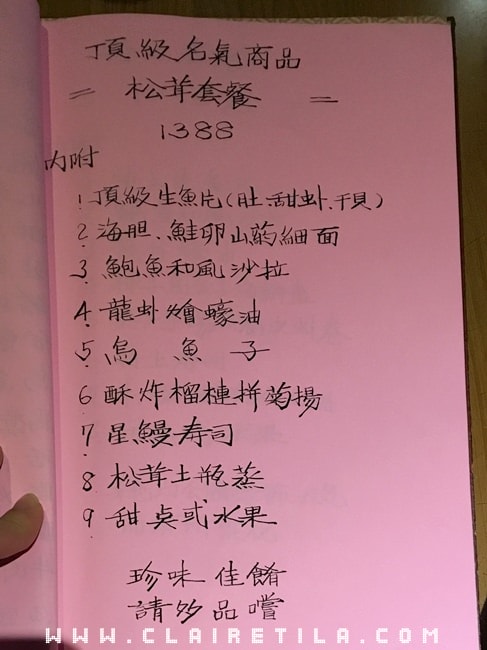 頂級名氣商品
= 松茸套餐 =
1388
內附
1. 頂級生魚片(肚.甜虾.干貝)
2. 海胆.鮭卵山葯細面
3. 鮑魚和風沙拉
4. 龍虾燴蠔油
5. 烏魚子
6 酥炸榴槤拼菊揚
7 星鰻寿司
8 松茸土瓶蒸
9. 甜桌或水果
珍味佳餚
請多品嚐
WWW.CLAIRETILA.COM